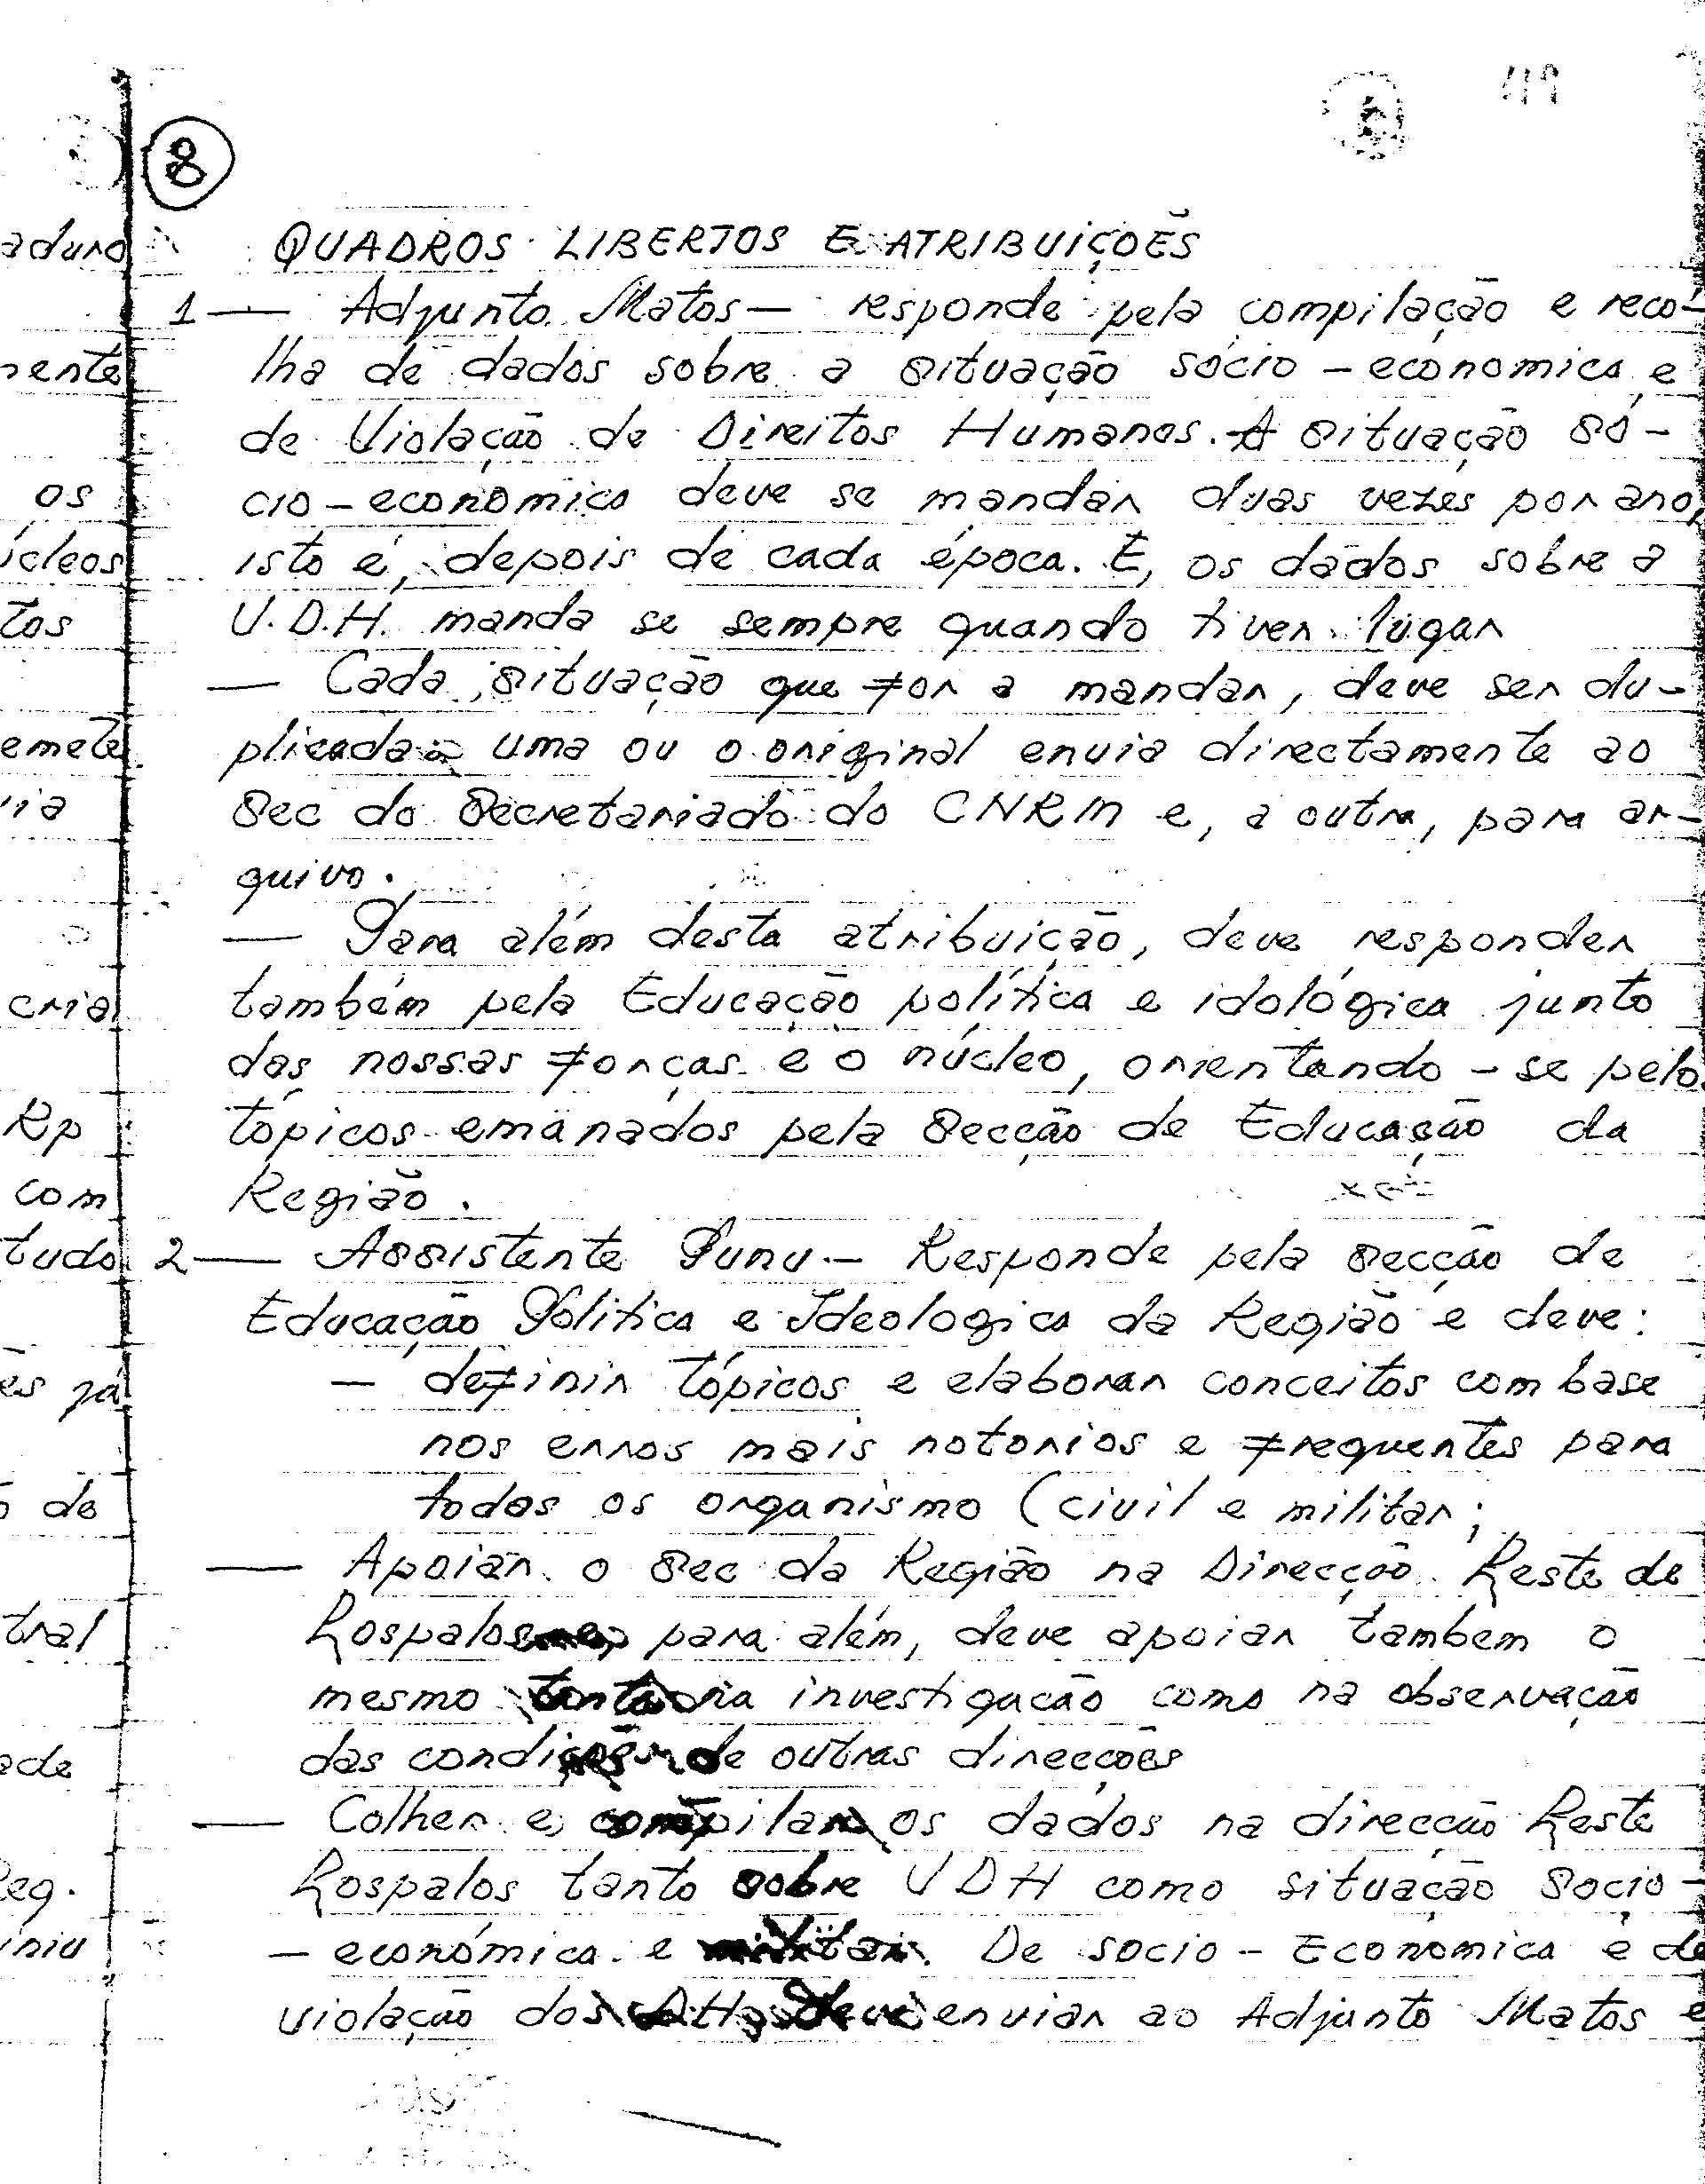 8
QUADROS LIBERTOS E ATRIBUIÇOES
1 — Adjunto Matos — responde pela compilação e reco-
lha de dados sobre a situação sócio - economica e
de Violação de Direitos Humanos. A situação só-
cio - economica deve se mandar duas vezes por ano,
isto é, depois de cada época. E, os dados sobre a
V.D.H. manda se sempre quando tiver lugar
— Cada situação que for a mandar, deve ser du-
plicada uma ou o original envia directamente ao
Sec do Secretariado do CNRM e, a outra, para ar-
quivo.
— Para além desta atribuição, deve responder
também pela Educação política e idológica junto
das nossas forças e o núcleo, orientando - se pelo
tópicos emanados pela Secção de Educação da
Região.
2 — Assistente Punu. — Responde pela Secção de
Educação Politica e Ideologica da Região e deve:
— definir tópicos e elaborar conceitos com base
nos erros mais notorios e frequentes para
todos os organismo (civil e militar;
— Apoiar o Sec da Região na Direcção Leste de
Lospalos para além, deve apoiar tambem o
mesmo na investigação como na observação
das condições de outras direcções
— Colher e compilar os dados na direcção Leste
Lospalos tanto sobre VDH como situação Socio -
- económica e militar. De socio - Economica e de
violação dos deve enviar ao Adjunto Matos e
aduro
mente
os
icleos
tos
emete
via
cria
Rp
com
tudo
es já
de
tral
ade
Reg.